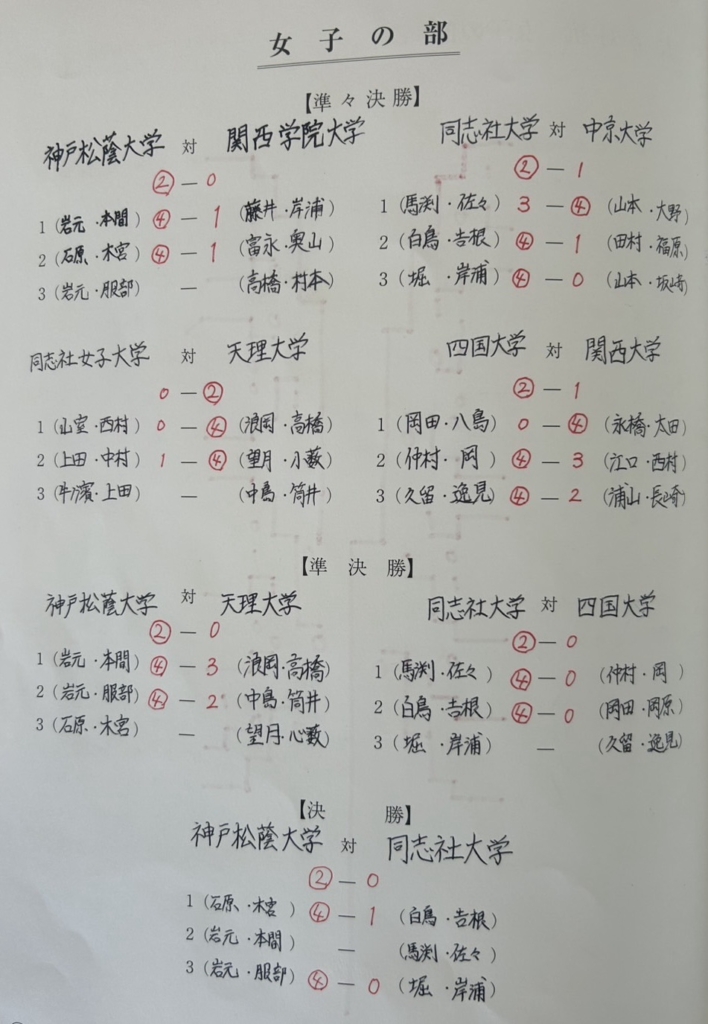 女子の部
【準々決勝】
神戸松蔭大学 対 関西学院大学
② — 0
1 (岩元・本間) ④ — 1 (藤井・岸浦)
2 (石原・木宮) ④ — 1 (富永・奥山)
3 (岩元・服部) — (高橋・村本)
同志社大学 対 中京大学
② — 1
1 (馬渕・佐々) 3 — ④ (山本・大野)
2 (白鳥・吉根) ④ — 1 (田村・福原)
3 (堀・岸浦) ④ — 0 (山本・坂崎)
同志社女子大学 対 天理大学
0 — ②
1 (山室・西村) 0 — ④ (浪岡・高橋)
2 (上田・中村) 1 — ④ (望月・小薮)
3 (牛濱・上田) — (中島・筒井)
四国大学 対 関西大学
② — 1
1 (岡田・八島) 0 — ④ (永橋・太田)
2 (仲村・岡) ④ — 3 (江口・西村)
3 (久留・逸見) ④ — 2 (浦山・長崎)
【準決勝】
神戸松蔭大学 対 天理大学
② — 0
1 (岩元・本間) ④ — 3 (浪岡・高橋)
2 (岩元・服部) ④ — 2 (中島・筒井)
3 (石原・木宮) — (望月・小薮)
同志社大学 対 四国大学
② — 0
1 (馬渕・佐々) ④ — 0 (仲村・岡)
2 (白鳥・吉根) ④ — 0 (岡田・岡原)
3 (堀・岸浦) — (久留・逸見)
【決勝】
神戸松蔭大学 対 同志社大学
② — 0
1 (石原・木宮) ④ — 1 (白鳥・吉根)
2 (岩元・本間) — (馬渕・佐々)
3 (岩元・服部) ④ — 0 (堀・岸浦)